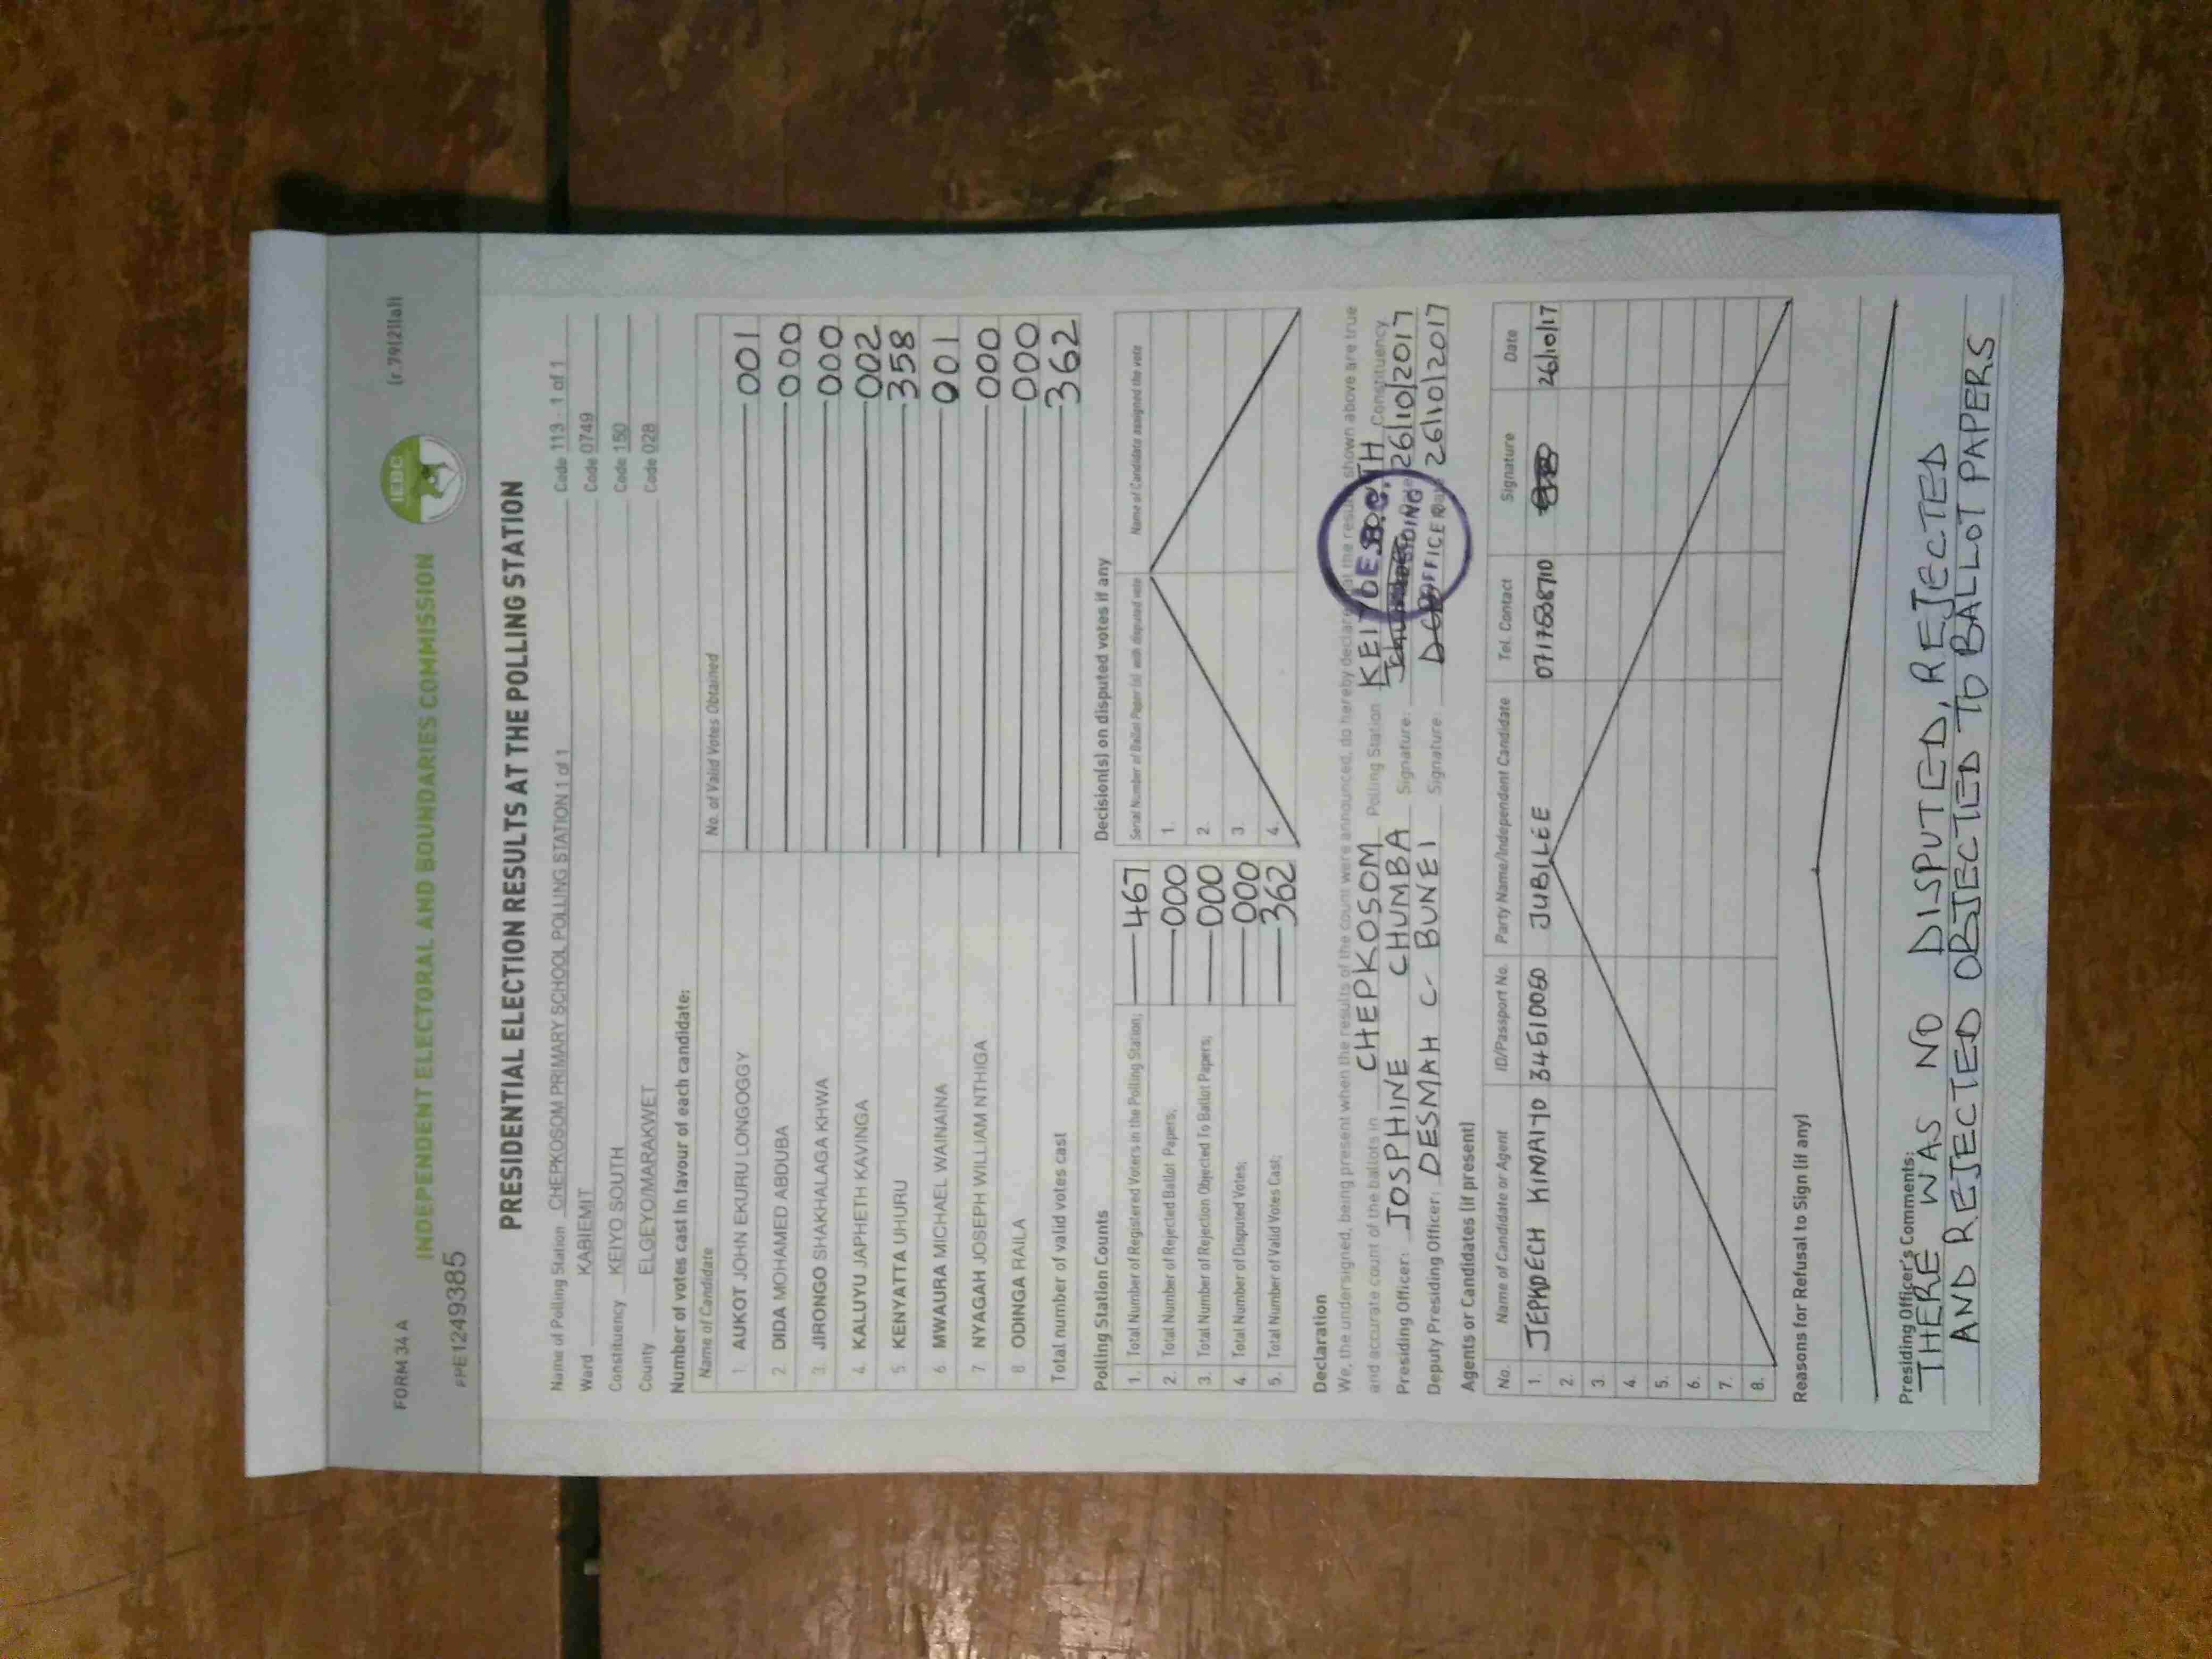 FORM 34 A
(r.79(2)(a))
INDEPENDENT ELECTORAL AND BOUNDARIES COMMISSION
IEBC
PPE1249385
PRESIDENTIAL ELECTION RESULTS AT THE POLLING STATION
Name of Polling Station CHEPKOSOM PRIMARY SCHOOL POLLING STATION 1 of 1 Code 113 - 1 of 1
Ward KABIEMIT Code 0749
Constituency KEIYO SOUTH Code 150
County ELGEYO/MARAKWET Code 028
Number of votes cast in favour of each candidate:
Name of Candidate No. of Valid Votes Obtained
1 AUKOT JOHN EKURU LONGOGGY 001
2 DIDA MOHAMED ABDUBA 000
3 JIRONGO SHAKHALAGA KHWA 000
4 KALUYU JAPHETH KAVINGA 002
5 KENYATTA UHURU 358
6 MWAURA MICHAEL WAINAINA 001
7 NYAGAH JOSEPH WILLIAM NTHIGA 000
8 ODINGA RAILA 000
Total number of valid votes cast 362
Polling Station Counts
1. Total Number of Registered Voters in the Polling Station; 467
2. Total Number of Rejected Ballot Papers; 000
3. Total Number of Rejection Objected To Ballot Papers; 000
4. Total Number of Disputed Votes; 000
5. Total Number of Valid Votes Cast; 362
Decision(s) on disputed votes if any
Serial Number of Ballot Paper (s) with disputed vote Name of Candidate assigned the vote
1.
2.
3.
4.
Declaration
We, the undersigned, being present when the results of the count were announced, do hereby declare that the results shown above are true
and accurate count of the ballots in CHEPKOSOM Polling Station KEIYO SOUTH Constituency
Presiding Officer: JOSPHINE CHUMBA Signature: Date 26/10/2017
Deputy Presiding Officer: DESMAH C. BUNEI Signature: Date 26/10/2017
Agents or Candidates (if present)
No. Name of Candidate or Agent ID/Passport No. Party Name/Independent Candidate Tel. Contact Signature Date
1. JEPKOECH 34610050 JUBILEE 0717538710 26/10/17
2.
3.
4.
5.
6.
7.
8.
Reasons for Refusal to Sign (if any)
Presiding Officer's Comments:
THERE WAS NO DISPUTED, REJECTED
AND REJECTED OBJECTED TO BALLOT PAPERS